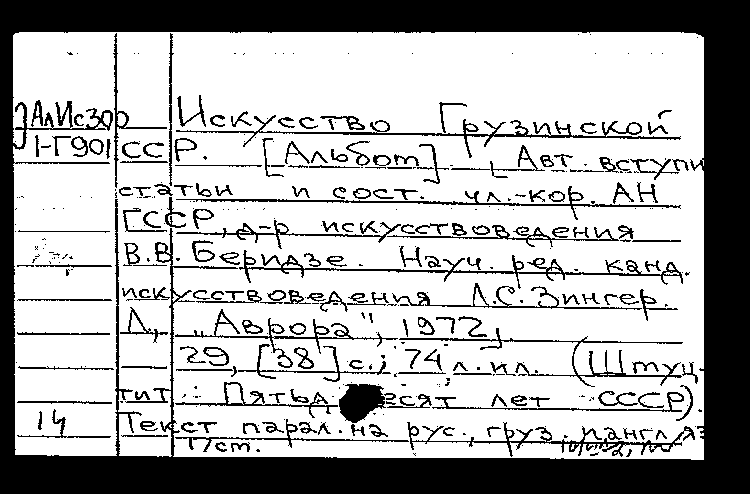 АлИс300 Искусство Грузинской
1-Г901 ССР. [Альбом]. [Авт. вступи
статьи и сост. чл.-кор. АН
ГССР, д-р искусствоведения
В.В. Беридзе. Науч. ред. канд.
искусствоведения Л.С. Зингер.
Л., „Аврора", 1972.
29, [38] с.; 74 л. ил. (Штуц-
тит.: Пятьдесят лет СССР).
14 Текст парал. на рус., груз. и англ. яз
Г/ст.